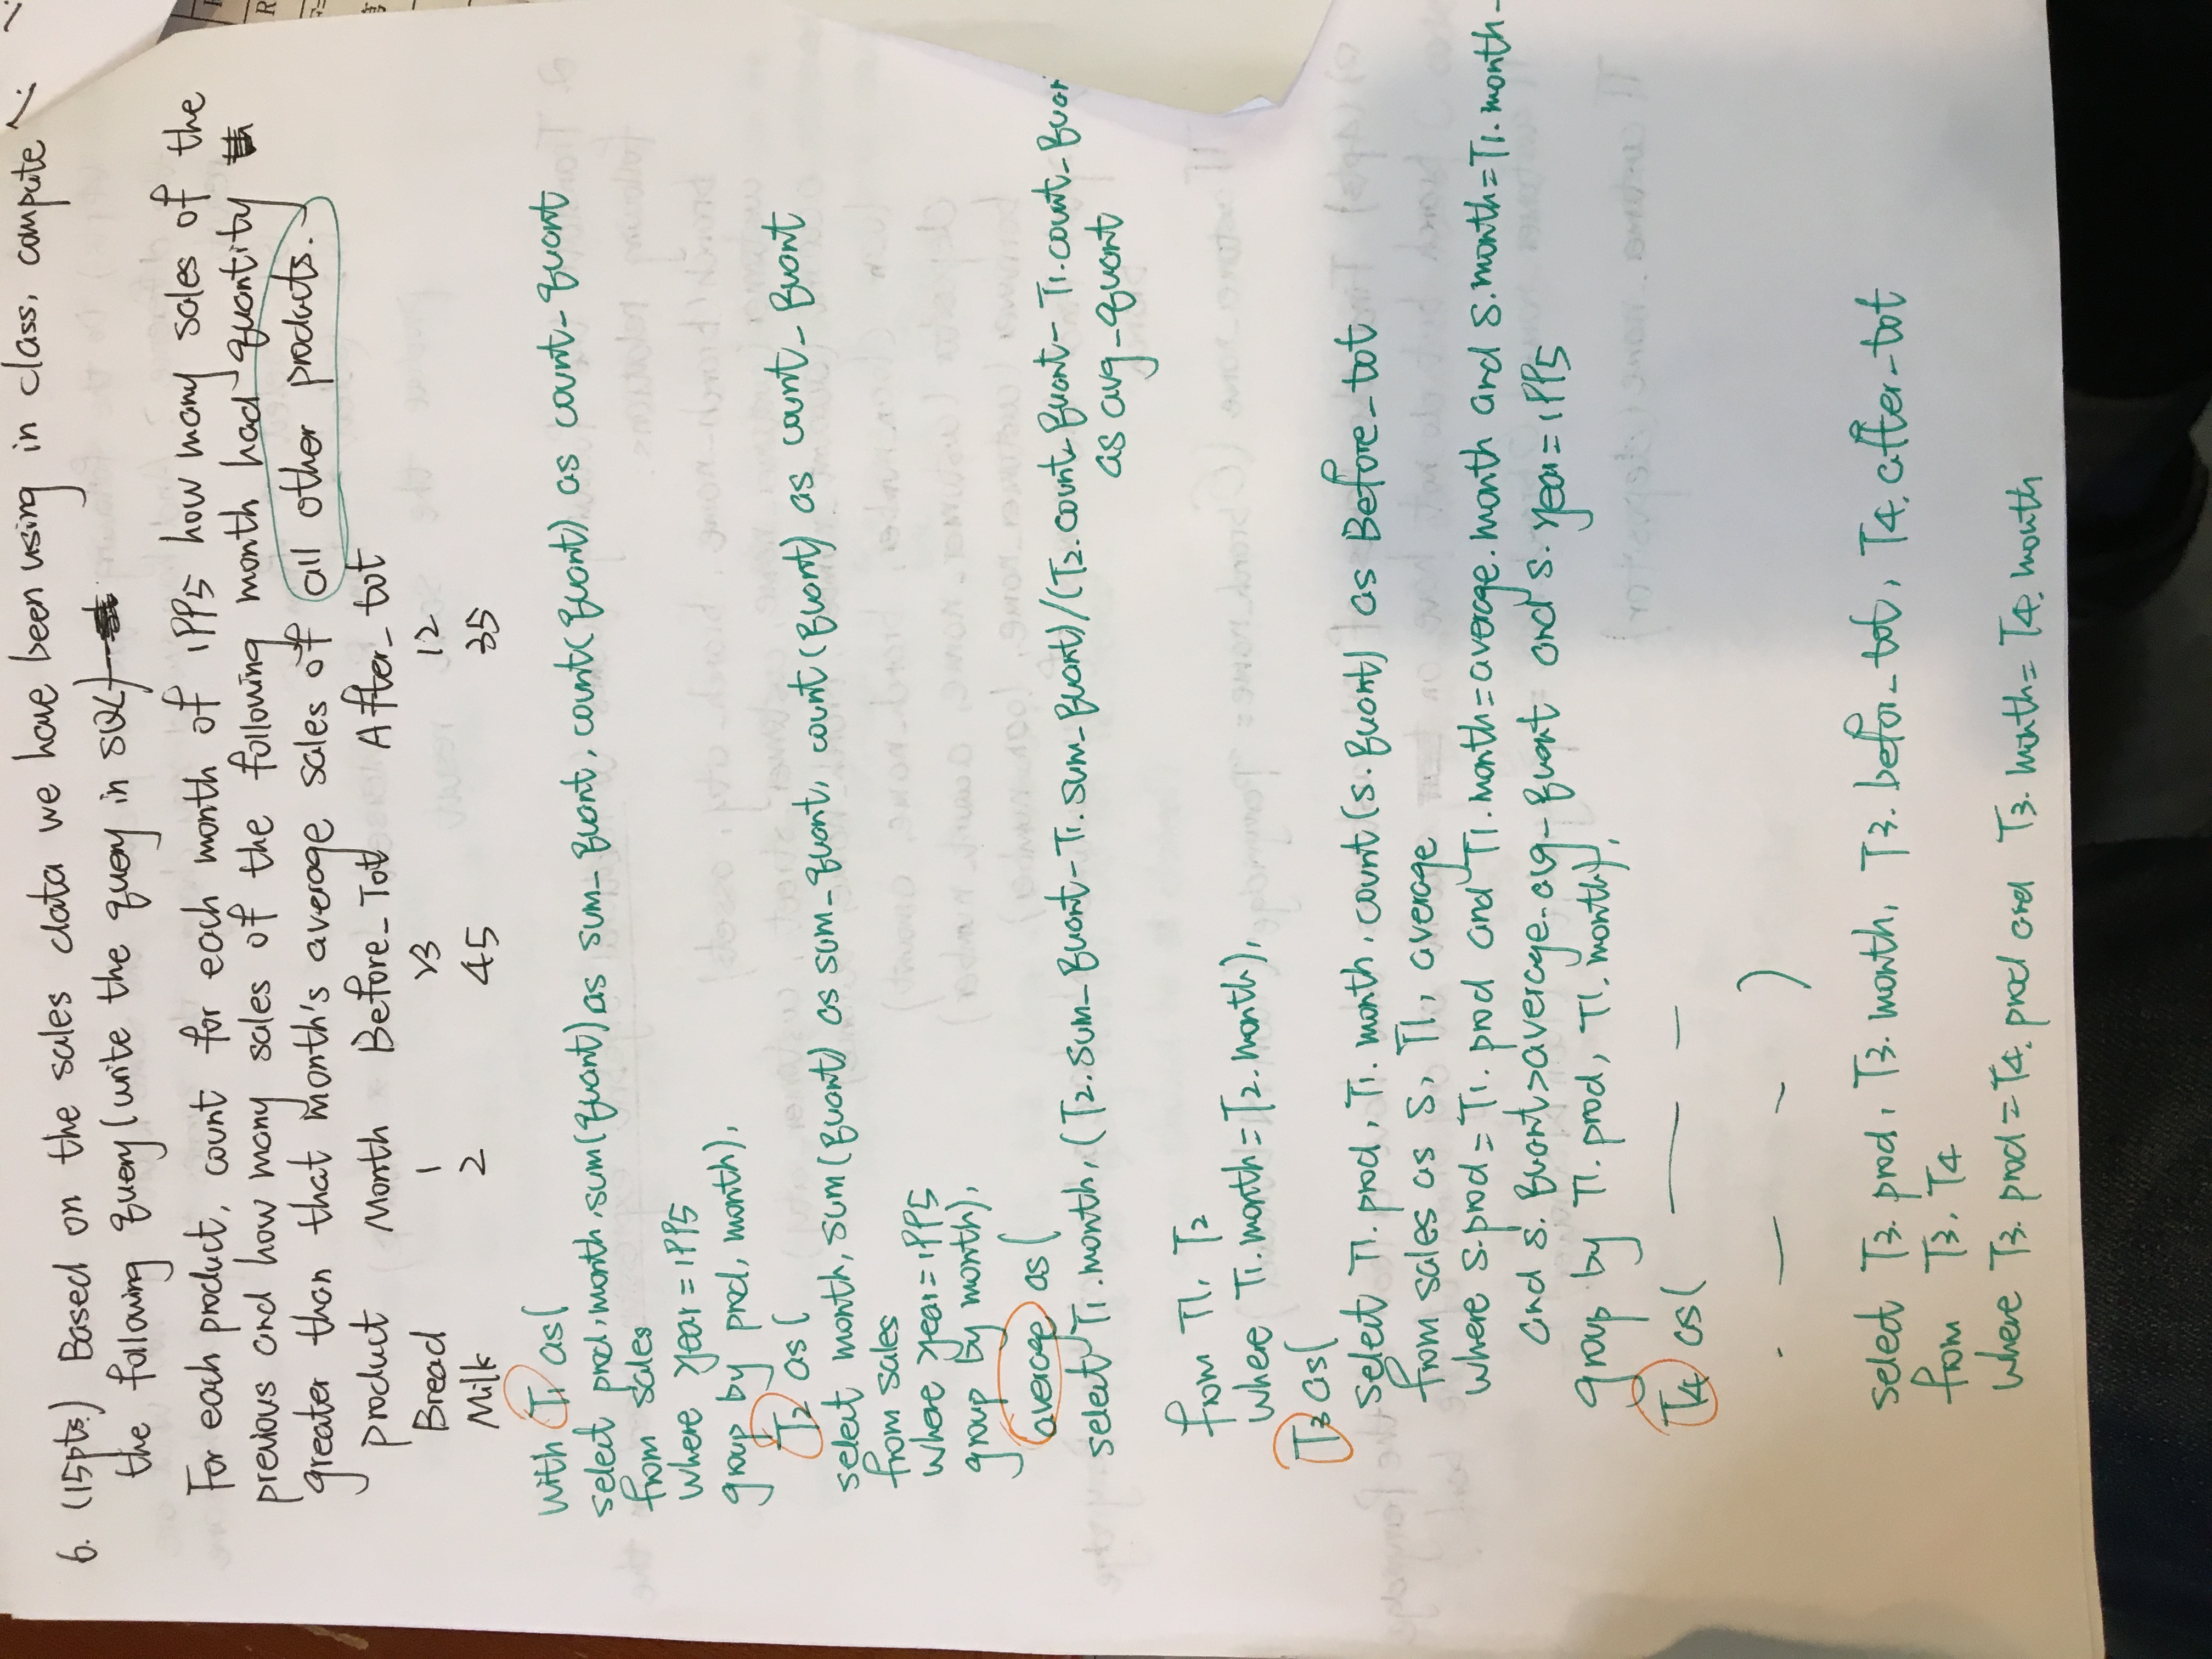 6. (15pts.) Based on the sales data we have been using in class, compute
the following query (write the query in SQL)
For each product, count for each month of 1995 how many sales of the
previous and how many sales of the following month had quantity
greater than that month's average sales of all other products.
product Month Before_Tot After_tot
Bread 1 23 12
Milk 2 45 35
with T1 as(
select prod, month, sum(quant) as sum_quant, count(quant) as count_quant
from sales
where year = 1995
group by prod, month),
T2 as(
select month, sum(quant) as sum_quant, count(quant) as count_quant
from sales
where year = 1995
group by month),
average as(
select T1.month, (T2.sum_quant - T1.sum_quant)/(T2.count_quant - T1.count_quan
as avg_quant
from T1, T2
where T1.month = T2.month),
T3 as(
select T1.prod, T1.month, count(s.quant) as Before_tot
from sales as S, T1, average
where s.prod = T1.prod and T1.month = average.month and s.month = T1.month -
and s.quant > average.avg_quant and s.year = 1995
group by T1.prod, T1.month),
T4 as(
)
select T3.prod, T3.month, T3.befor_tot, T4.after_tot
from T3, T4
where T3.prod = T4.prod and T3.month = T4.month